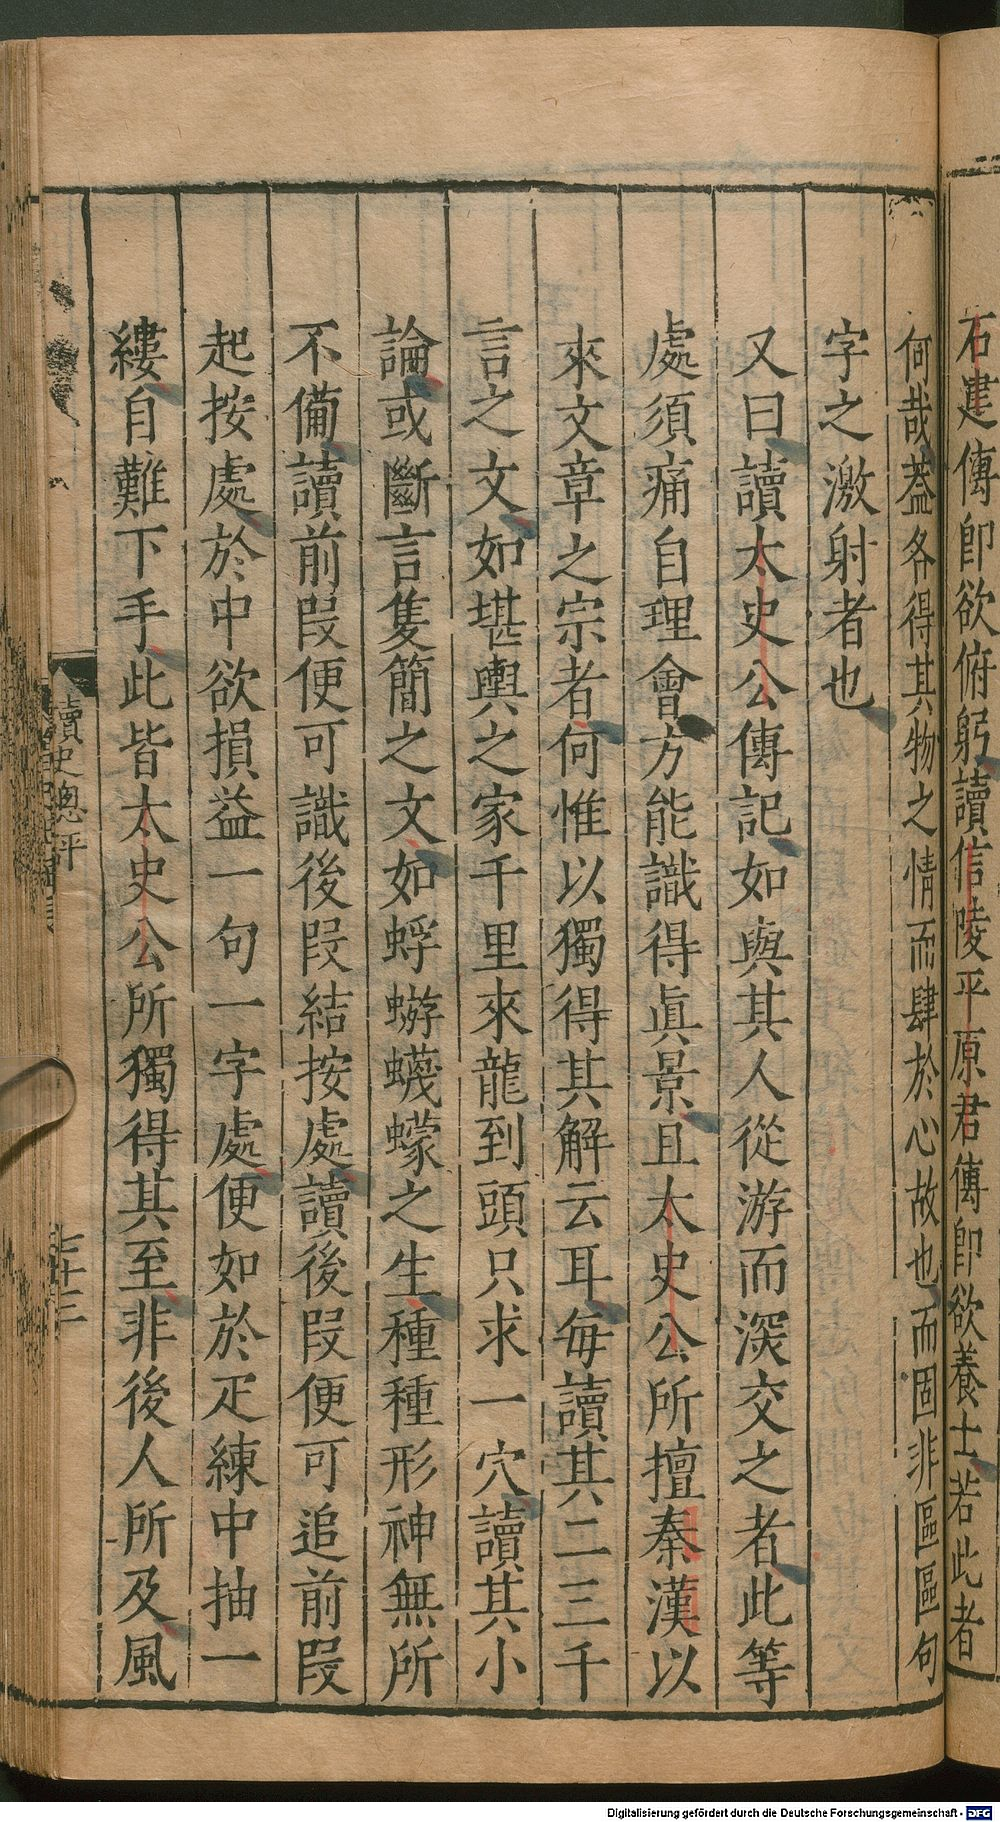 石建傳卽欲俯躬讀信陵平原君傳卽欲養士若此者
何哉葢各得其物之情而肆於心故也而固非區區句
字之激射者也
又曰讀太史公傳記如與其人從游而深交之者此等
處須痛自理會方能識得眞景且太史公所擅秦漢以
來文章之宗者何惟以獨得其解云耳每讀其二三千
言之文如堪輿之家千里來龍到頭只求一穴讀其小
論或斷言隻簡之文如蜉蝣蠛蠓之生種種形神無所
不備讀前段便可識後段結按處讀後段便可追前段
起按處於中欲損益一句一字處便如於疋練中抽一
縷自難下手此皆太史公所獨得其至非後人所及風
讀史總評
七十三
Digitalisierung gefördert durch die Deutsche Forschungsgemeinschaft - DFG